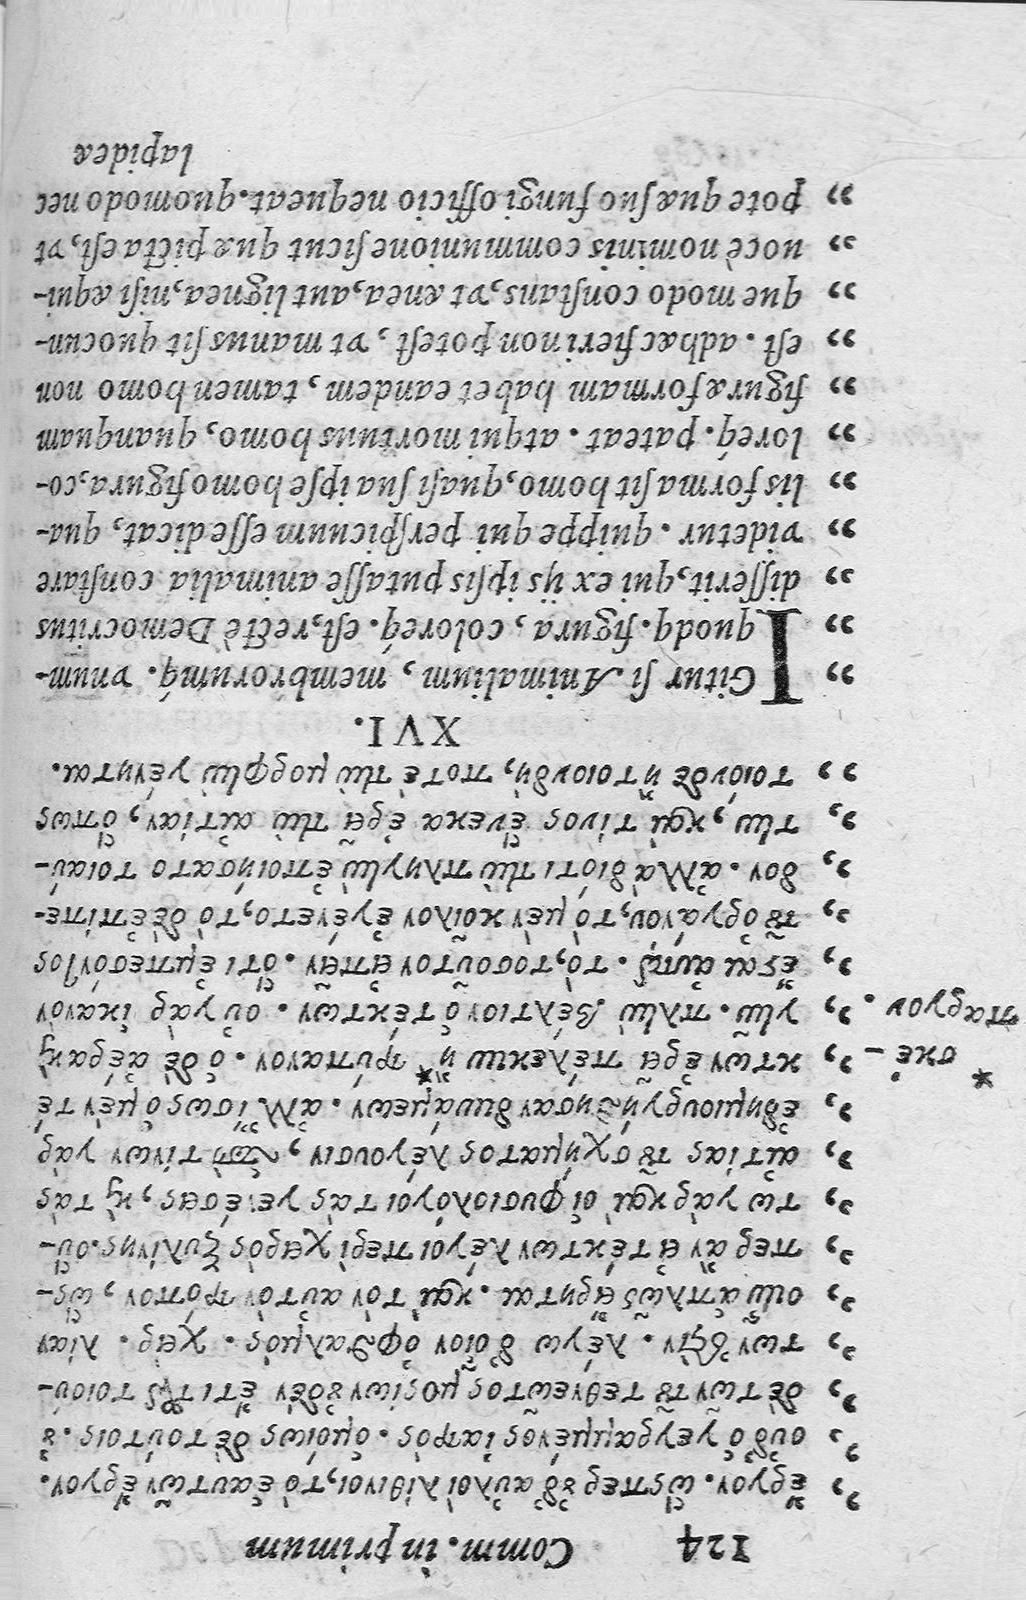 124 Comm. in primum
„ ἔργον. ὥςπερ ȣ̓δ' αὐλοὶ λίθινοι, τὸ ἑαυτῶν ἔργον.
„ οὐδ' ὁ γεγραμμένος ἰατρός. ὁμοίως δὲ τούτοις. ȣ̓
„ δὲ τῶν τοῦ τεθνεῶτος μοείων ȣ̓δὲν ἔτι τῶν τοιού-
„ των ὅξιν. λέγω δ' οἷον ὀφθαλμὸς. χεὶρ. λίαν
„ οὖν ἁπλῶς εἴρηται. καὶ τὸν αὐτὸν τρόπον, ὥς-
„ περ ἂν εἰ τέκτων λέγοι περὶ χειρὸς ξυλίνης. οὕ-
„ τω γὰρ καὶ οἱ φυσιολόγοι τὰς γενέσεις, καὶ τὰς
„ αἰτίας τοῦ σχήματος λέγουσιν, ὑπὸ τίνων γὰρ
„ ἐδημιουργήθησαν δυνάμεων. ἀλλ' ἴσως ὁ μὲν τέ-
„ κτων ἐρεῖ πέλεκυν ἢ * τρύπανον. ὁ δὲ ἀέρα καὶ
„ γῆν. πλὴν βέλτιον ὁ τέκτων. οὐ γὰρ ἱκανὸν
„ ἔσται αὐτῷ. τὸ, τοσοῦτον εἰπεῖν. ὅτι ἐμπεσόντος
„ τοῦ ὀργάνου, τὸ μὲν κοῖλον ἐγένετο, τὸ δὲ ἐπίπε-
„ δον. ἀλλὰ διότι τὴν πληγὴν ἐποιήσατο τοιαύ-
„ την, καὶ τίνος ἕνεκα ἐρεῖ τὴν αἰτίαν, ὅπως
„ τοιόνδε ἢ τοιονδὴ, ποτε τὴν μορφὴν γένηται.
* σκέ-
παργον.
XVI.
„ IGitur si Animalium, membrorumq́. vnum-
„ quodq. figura, coloreq́. est, rectè Democritus
„ disserit, qui ex ijs ipsis putasse animalia constare
„ videtur. quippe qui perspicuum esse dicat, qua-
„ lis forma sit homo, quasi sua ipse homo figura, co-
„ loreq́. pateat. atqui mortuus homo, quanquam
„ figuræ formam habet eandem, tamen homo non
„ est. adhæc fieri non potest, vt manus sit quocun-
„ que modo constans, vt ænea, aut lignea, nisi æqui-
„ uocè nominis communione sicut quæ picta est, vt
„ pote quæ suo fungi officio nequeat. quomodo nec
lapideæ